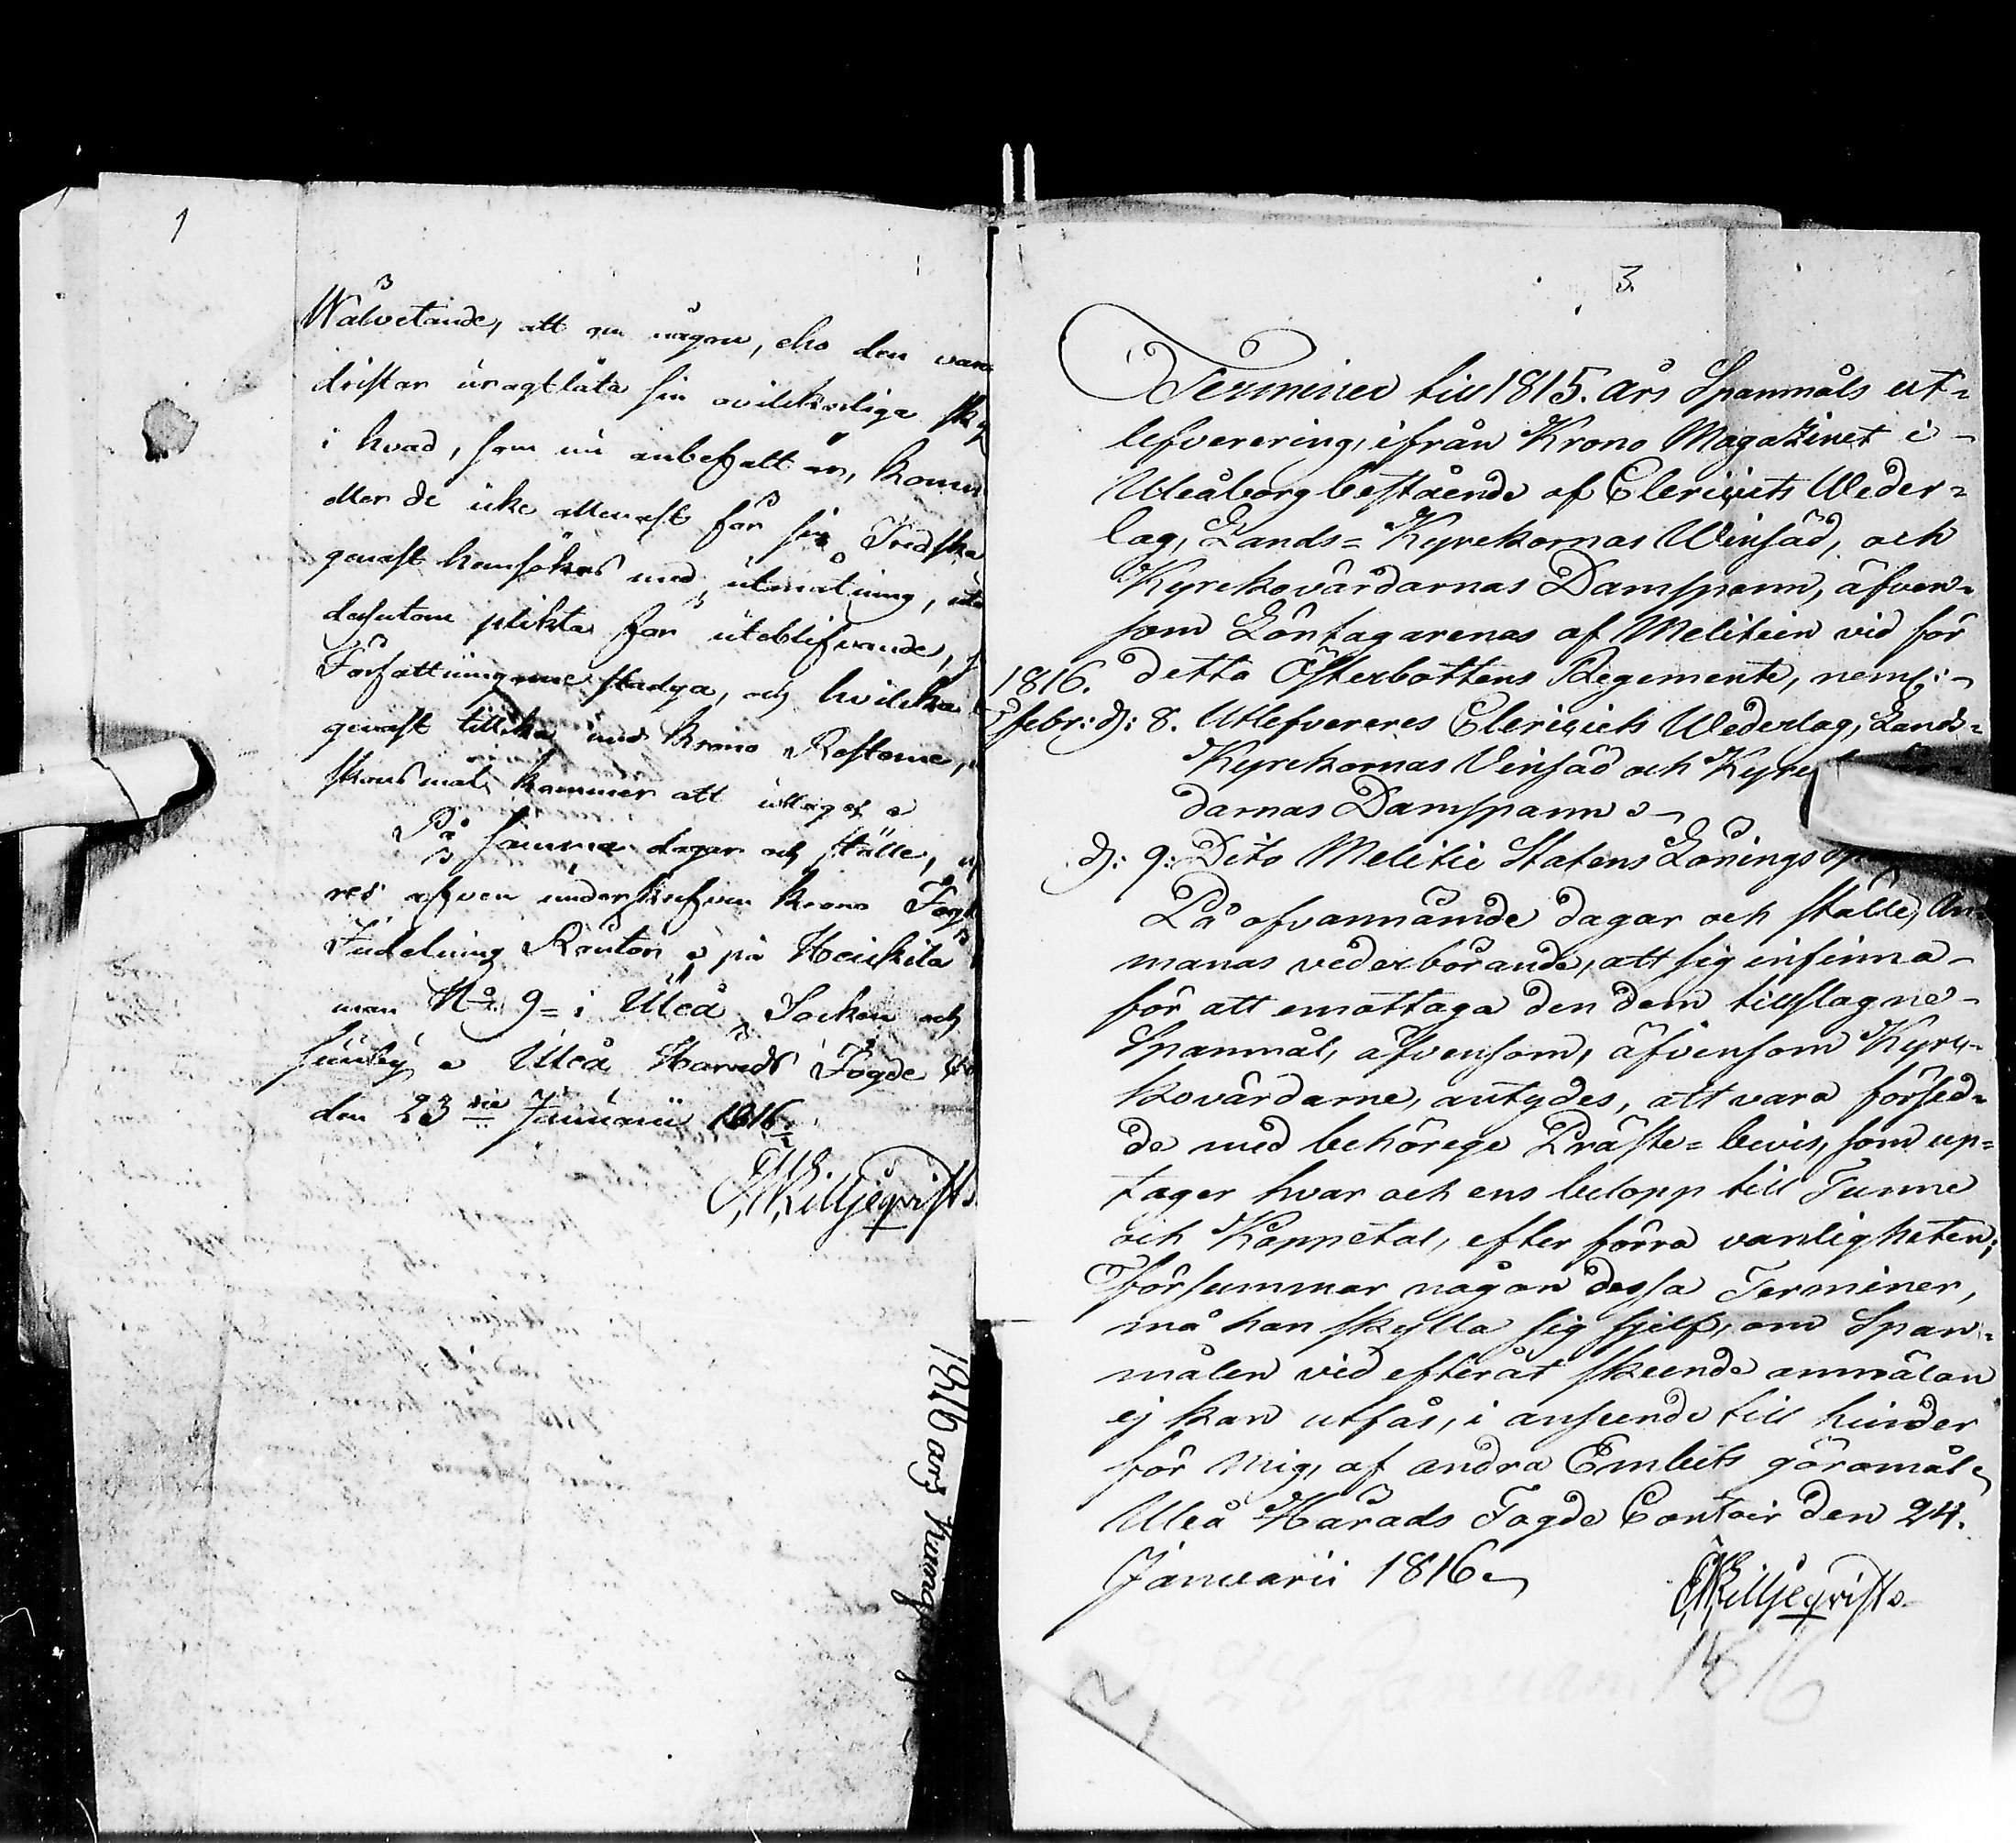 1
Wälvetande, att om någon, eho den vara
dristar uraktlåta sin ovilkorliga
i hvad, som nu anbefalt är, komm
mer de icke allenast för sin Tredska
genast hemsökas med utmätning, utan
desutom plikta för uteblifvande,
Författningarne stadga, och hvilka
genast tillika med Krono Restorne,
skonsmål kommer att uttagas
På samma dagar och ställe,
res äfven underskrefven Krono Fogd
Indelning Räntor på Heickilä
man No 9 i Uleå Socken och
by Uleå Härads Fogde
den 23die Januarii 1816.
Liljeqvist
1816 års Kung
3.
Terminer till 1815. års Spannmåls ut=
lefverering, ifrån Krono Magazinet i
Uleåborg bestående af Clericiets Weder=
lag, Lands= Kyrckornas Vinsäd, och
Kyrckovärdarnas Damspann, äfven=
som Löntagarenas af Melitien vid för
1816. detta Österbottens Regemente, neml:
febr: d: 8. Utlefvereres Clericiets Wederlag, Lands=
Kyrckornas Vinsäd och Kyre
darnas Damspann
d: 9: Dito Melitie Statens Lönings
På ofvannämde dagar och ställe, An=
manas vederbörande, att sig infinna
för att emottaga den dem tillslagne
Spanmål, äfvensom, äfvensom Kyrc=
kovärdarne, antydes, att vara försed=
de med behörige Präste= bevis, som up=
tager hvar och ens belopp till Tunne
och Kappetal, efter förra vanligheten;
Försummar någon dessa Terminer,
må han skylla sig sjelf, om Span=
målen vid efteråt skeende anmälan
ej kan utfås, i anseende till hinder
för mig, af andra Embets göromål
Uleå Härads Fogde Contoir den 24.
Januarii 1816.
Liljeqvist
28 Januarii 1816